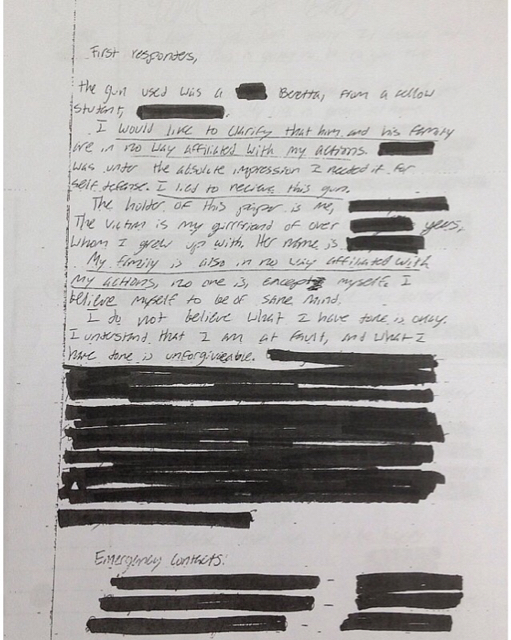 First responders,
the gun used was a Beretta, from a fellow
student,
I would like to clarify that him and his family
are in no way affiliated with my actions.
was under the absolute impression I needed it for
self defense. I lied to recieve this gun.
The holder of this paper is me,
The victim is my girlfriend of over years,
whom I grew up with. Her name is
My family is also in no way affiliated with
my actions, no one is, except myself. I
believe myself to be of sane mind.
I do not believe what I have done is okay.
I understand that I am at fault, and what I
have done is unforgiveable.
Emergency Contacts: